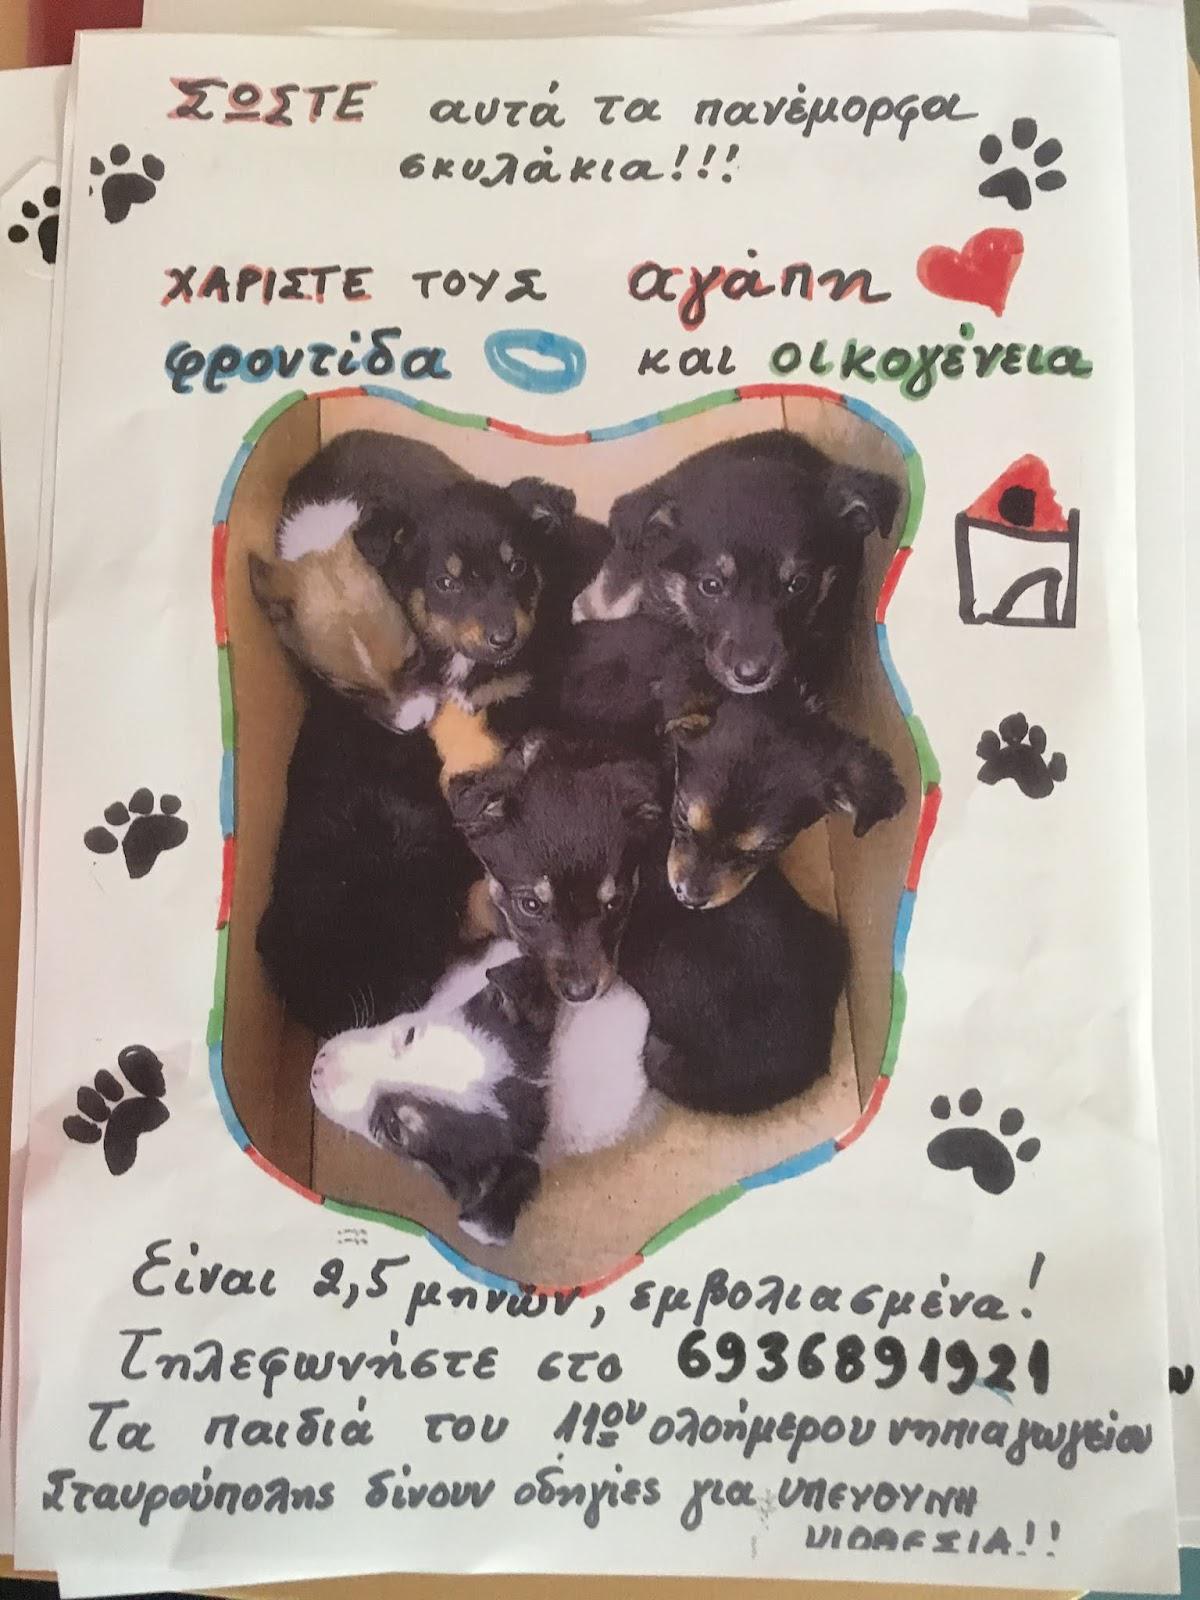 ΣΩΣΤΕ αυτά τα πανέμορφα
σκυλάκια!!!
ΧΑΡΙΣΤΕ ΤΟΥΣ αγάπη
φροντίδα και οικογένεια
Είναι 2,5 μηνών, εμβολιασμένα!
Τηλεφωνήστε στο 6936891921
Τα παιδιά του 11ου ολοήμερου νηπιαγωγείου
Σταυρούπολης δίνουν οδηγίες για ΥΠΕΥΘΥΝΗ
ΥΙΟΘΕΣΙΑ!!